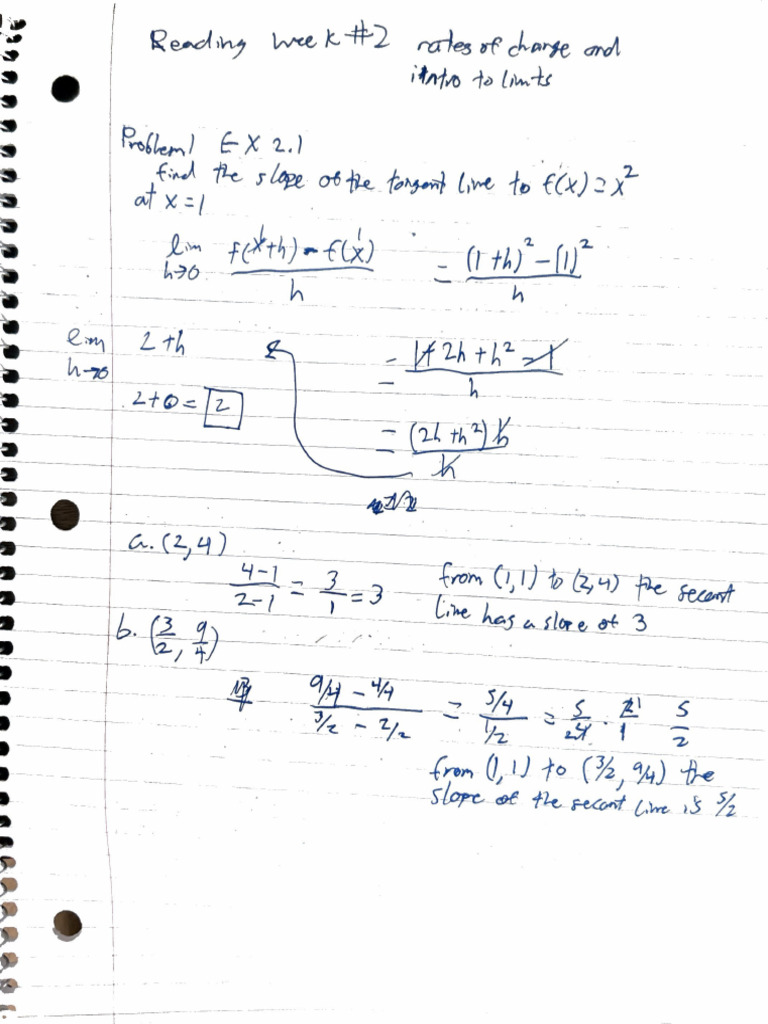 Reading week #2 rates of change and
intro to limits
Problem 1 EX 2.1
find the slope of the tangent line to f(x) = x²
at x = 1
lim h→0 (f(1+h) - f(1))/h = ((1+h)² - (1)²)/h
lim h→0 2+h
= (1+2h+h²-1)/h
2+0 = 2
= (2h+h²)h/h
a. (2,4)
(4-1)/(2-1) = 3/1 = 3
from (1,1) to (2,4) the secant
line has a slope of 3
b. (3/2, 9/4)
(9/4 - 4/4)/(3/2 - 2/2) = (5/4)/(1/2) = 5/4 · 2/1 5/2
from (1,1) to (3/2, 9/4) the
slope of the secant line is 5/2